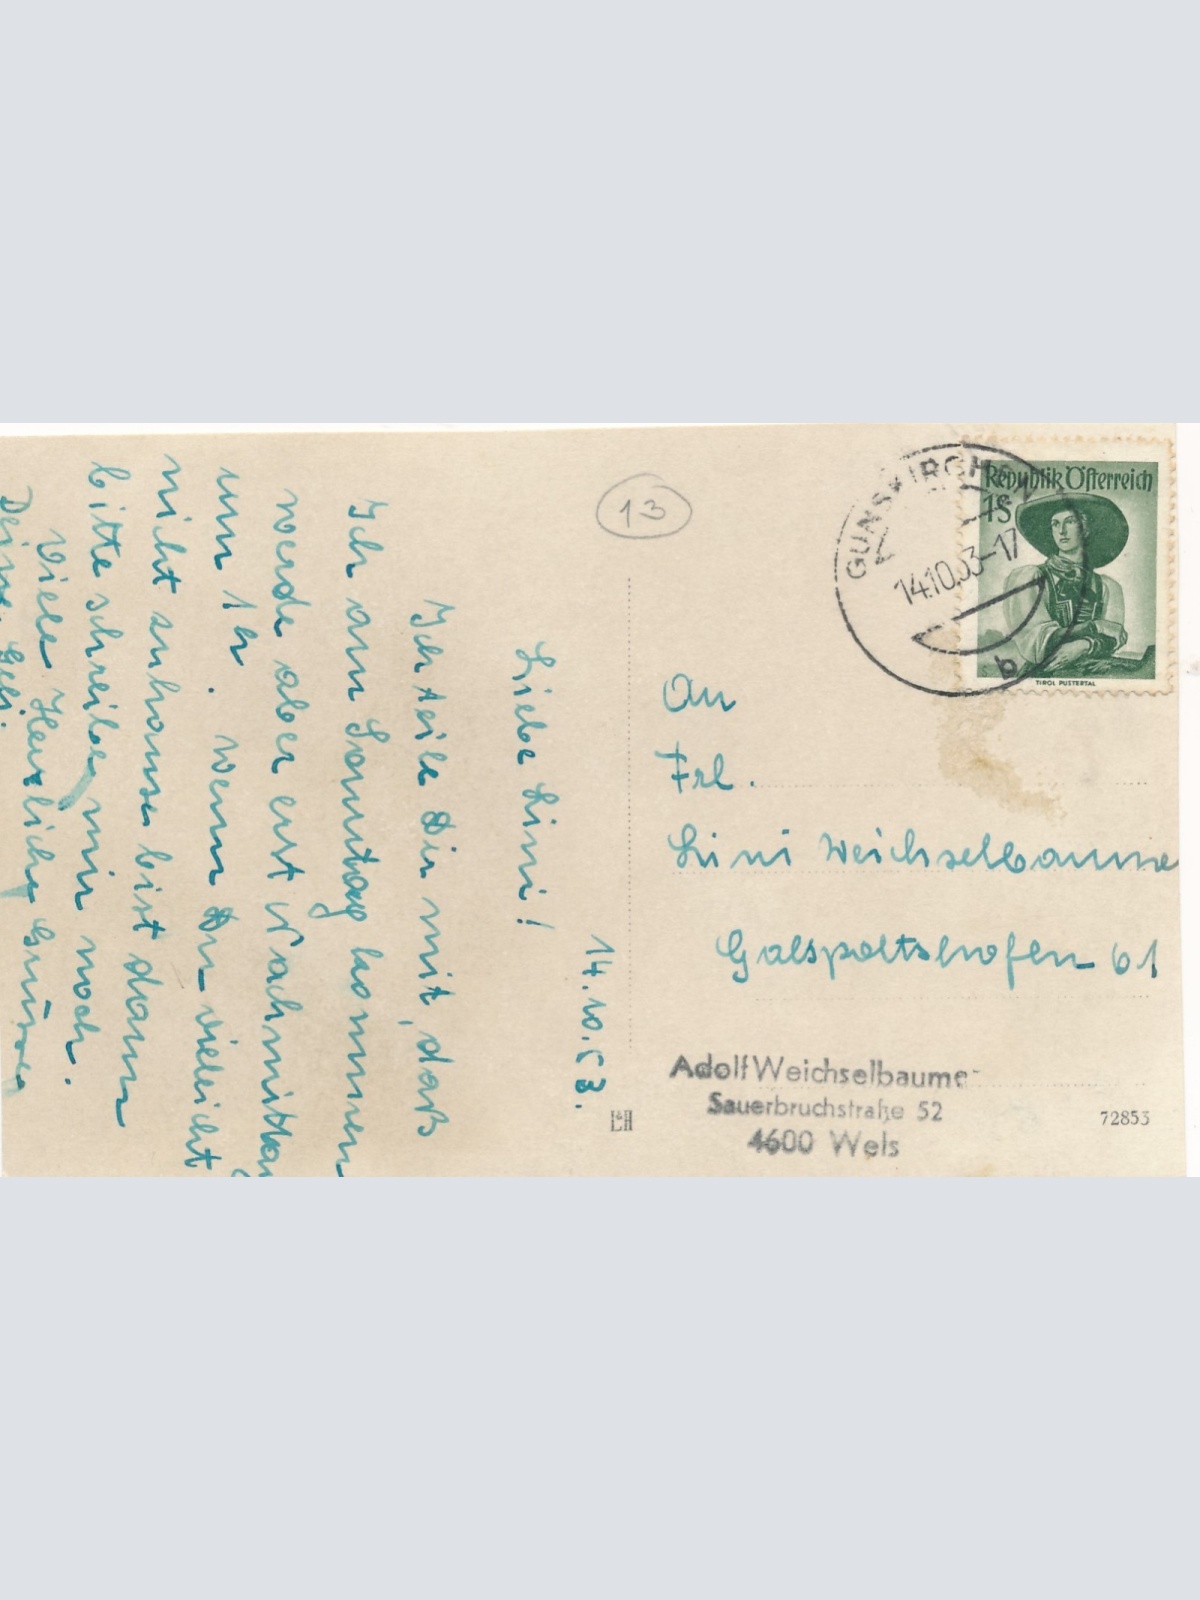 14.10.53.
Liebe Lini!
Ich teile Dir mit, daß
Ich am Sonntag kommen
werde aber erst Nachmittag
um 1h. wenn Du vieleicht
nicht zuhause bist dann
bitte schreibe mir noch.
Viele Herzliche Grüsse
Deine
13
GUNSKIRCHEN
14.10.53-17
b
Republik Österreich
1S
TIROL PUSTERTAL
An
Frl.
Lini Weichselbaume
Galspoltshofen 61
Adolf Weichselbaumer
Sauerbruchstraße 52
4600 Wels
72853